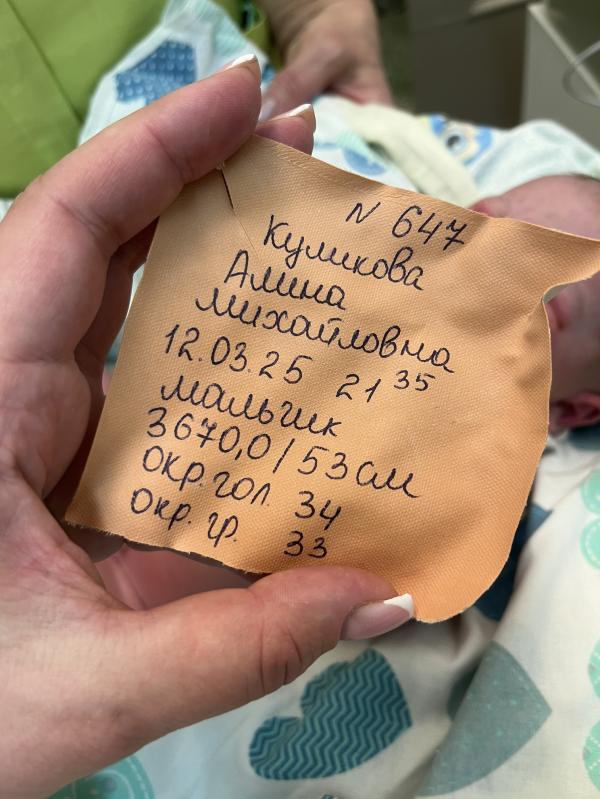 N 647
Куликова
Алина
Михайловна
12.03.25 21 35
мальчик
3670,0/53см
окр. гол. 34
окр. гр. 33